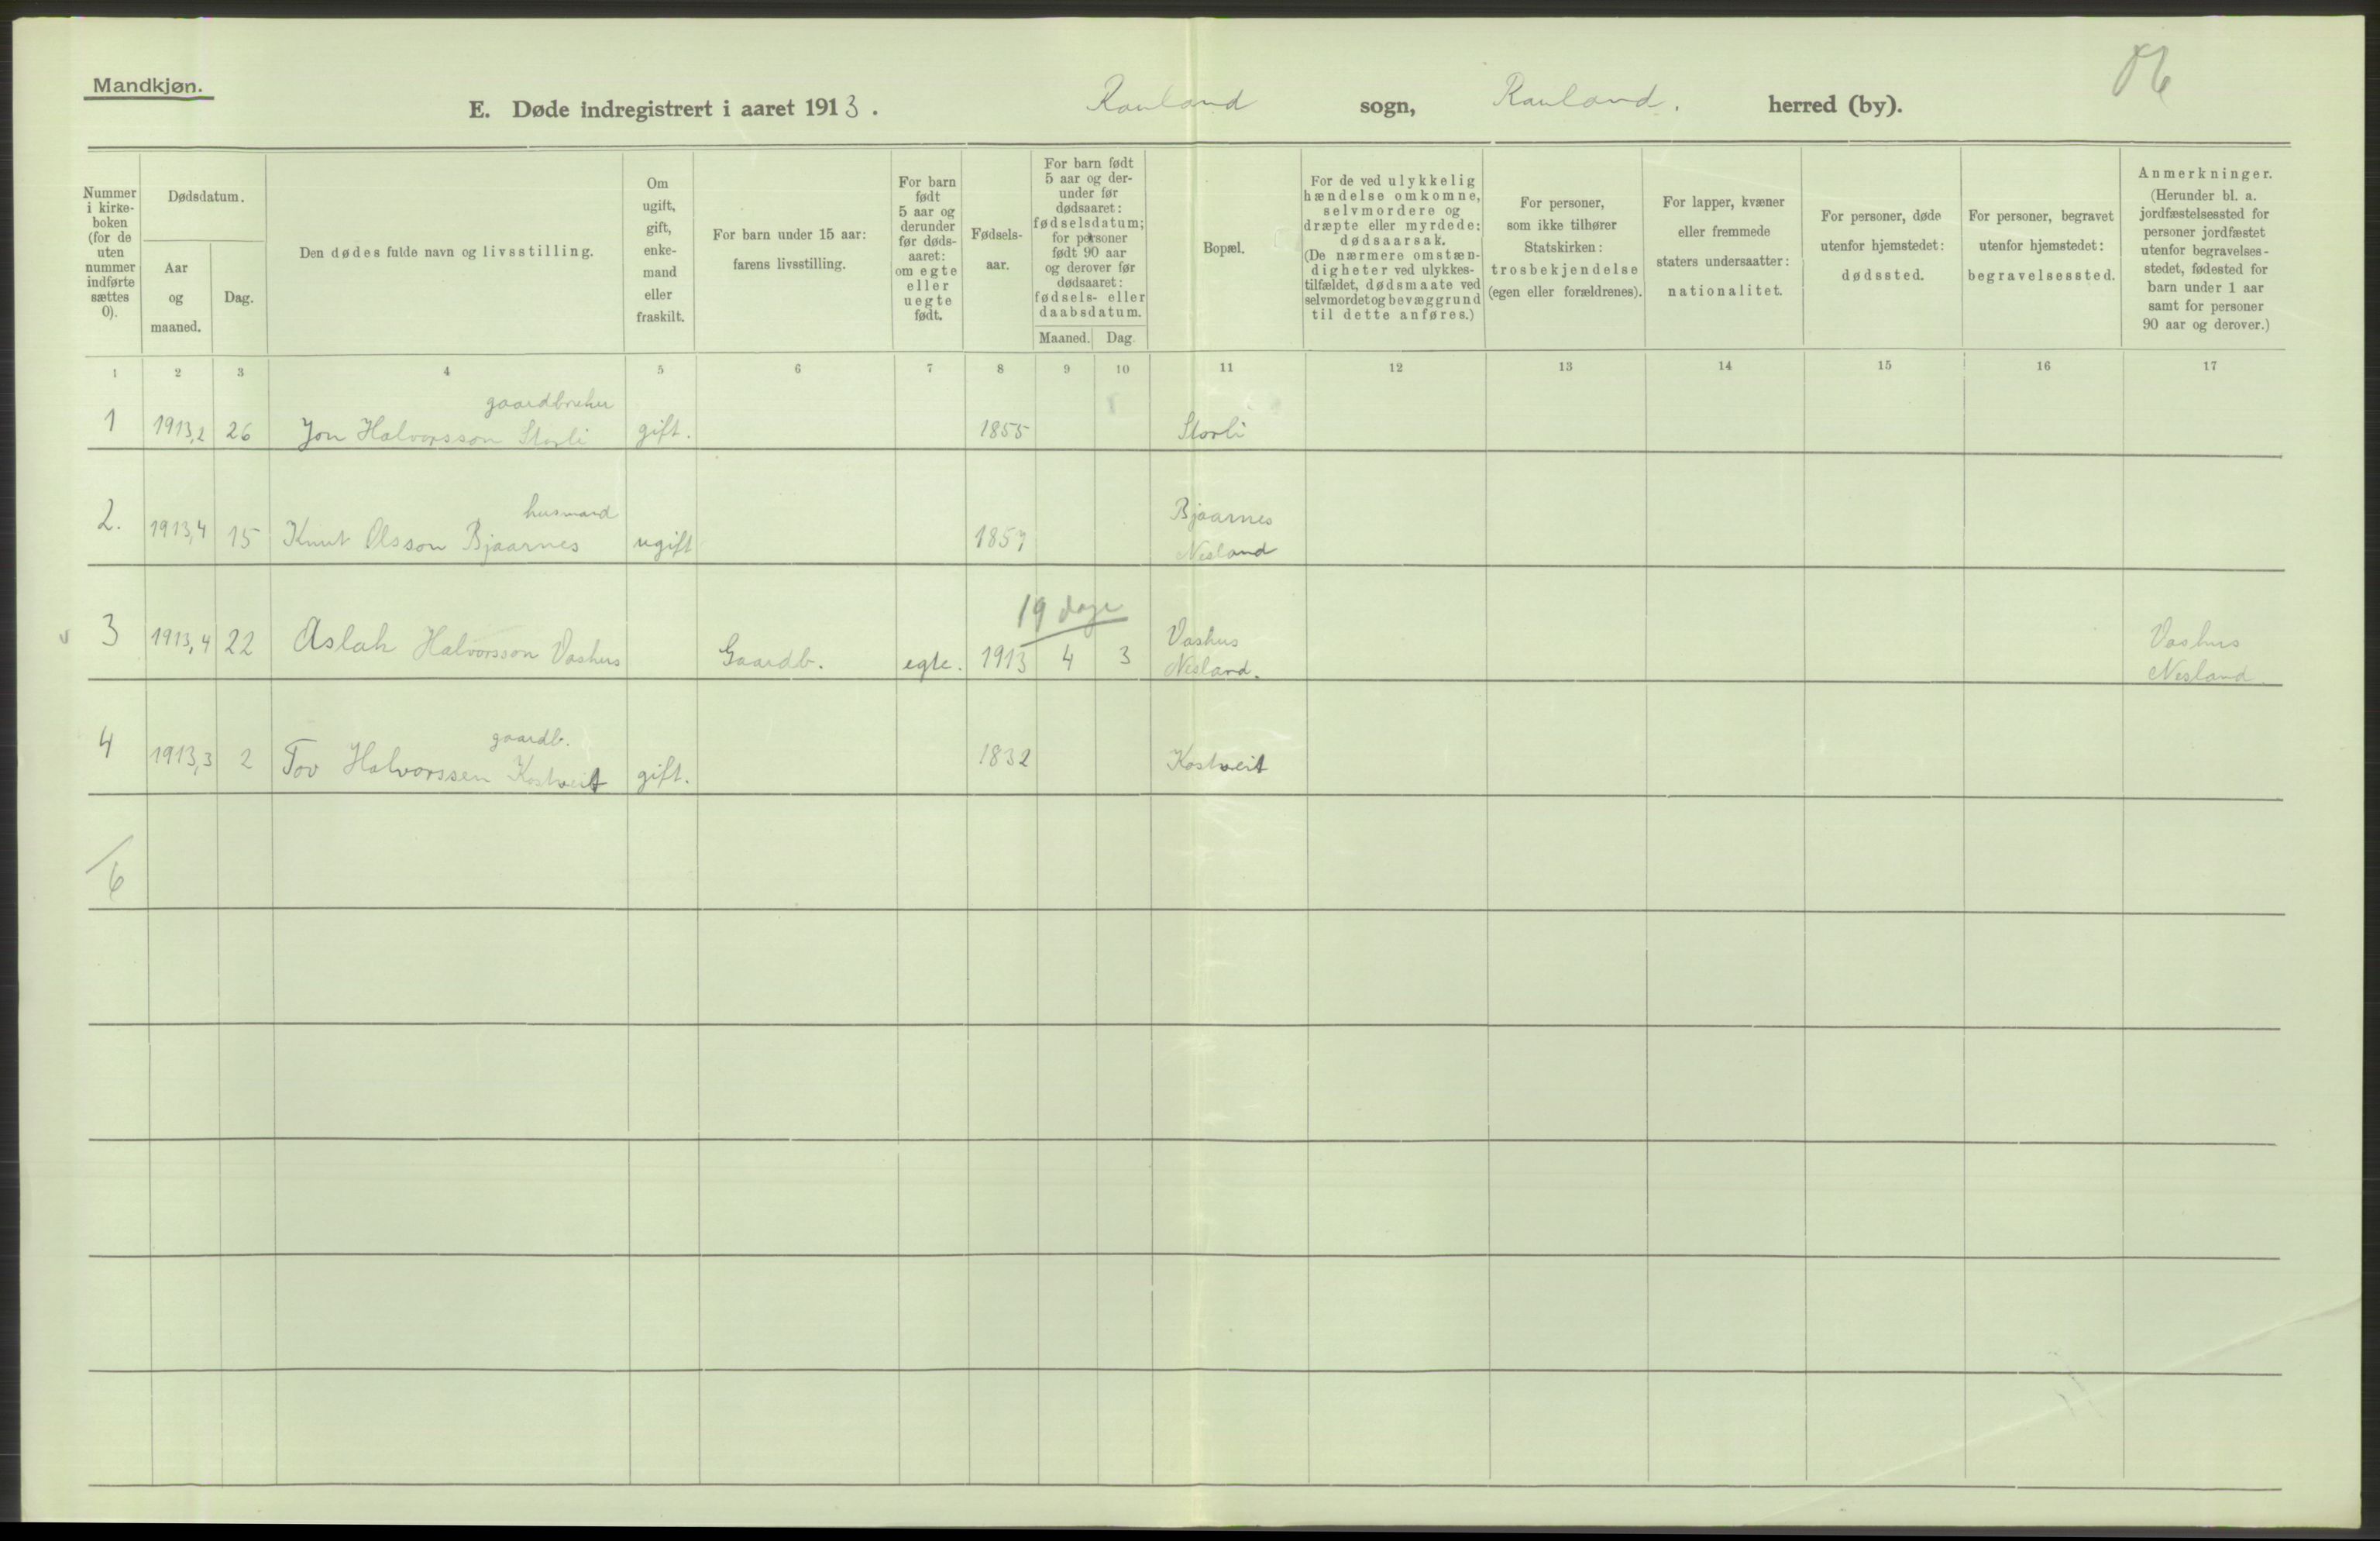 Mandkjøn.
E. Døde indregistrert i aaret 1913. Rauland sogn, Rauland. herred (by).
Nummer i kirke-boken (for de uten nummer indførte sættes 0).
Dødsdatum.
Aar og maaned.
Dag.
Den dødes fulde navn og livsstilling.
Om ugift, gift, enke-mand eller fraskilt.
For barn under 15 aar: farens livsstilling.
For barn født 5 aar og derunder før døds-aaret: om egte eller uegte født.
Fødsels-aar.
For barn født 5 aar og der-under før dødsaaret: fødselsdatum; for personer født 90 aar og derover før dødsaaret: fødsels- eller daabsdatum.
Maaned. Dag.
Bopæl.
For de ved ulykkelig hændelse omkomne, selvmordere og dræpte eller myrdede: dødsaarsak. (De nærmere omstæn-digheter ved ulykkes-tilfældet, dødsmaate ved selvmordet og bevæggrund til dette anføres.)
For personer, som ikke tilhører Statskirken: trosbekjendelse (egen eller forældrenes).
For lapper, kvæner eller fremmede staters undersaatter: nationalitet.
For personer, døde utenfor hjemstedet: dødssted.
For personer, begravet utenfor hjemstedet: begravelsessted.
Anmerkninger. (Herunder bl. a. jordfæstelsessted for personer jordfæstet utenfor begravelses-stedet, fødested for barn under 1 aar samt for personer 90 aar og derover.)
1 2 3 4 5 6 7 8 9 10 11 12 13 14 15 16 17
gaardbruker
1 1913,2 26 Jon Halvorsson Storli gift. 1855 Storli
husmand Bjaarnes
2. 1913,4 15 Knut Olsson Bjaarnes ugift 1857 Nesland
19 dage
Vashus Vashus
3 1913,4 22 Aslak Halvorsson Vashus Gaardb. egte. 1913 4 3 Nesland. Nesland.
gaardb.
4 1913,3 2 Tov Halvorssen Kostveit gift. 1832 Kostveit
6